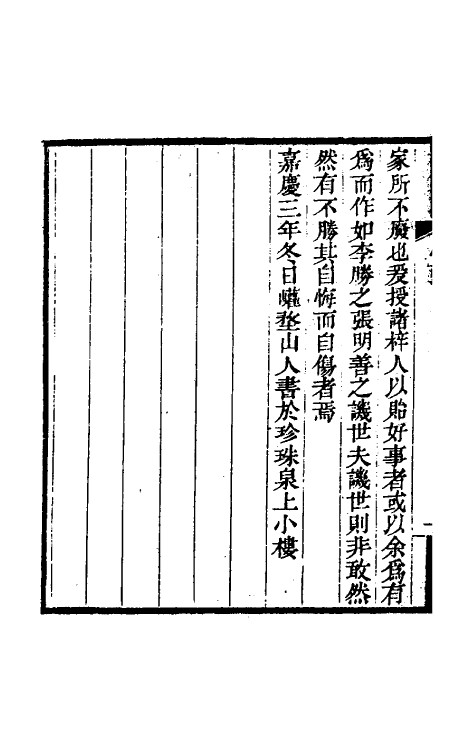 家所不廢也爰授諸梓人以貽好事者或以余爲有
爲而作如李勝之張明善之譏世夫譏世則非敢然
然有不勝其自悔而自傷者焉
嘉慶三年冬日蠟𡐛山人書於珍珠泉上小樓